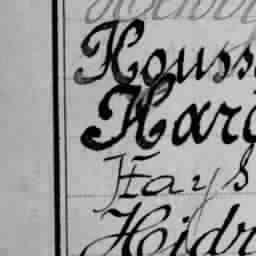 Houss
Harg
Hays
Hidr